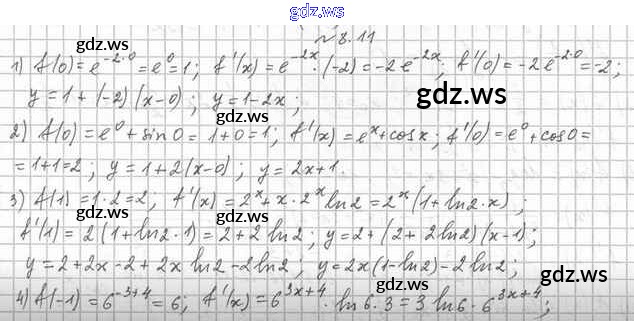 gdz.ws
№ 8.11
gdz.ws
1) f(0) = e^{-2·0} = e^0 = 1; f'(x) = e^{-2x}·(-2) = -2e^{-2x}; f'(0) = -2e^{-2·0} = -2;
y = 1 + (-2)(x-0); y = 1-2x; gdz.ws
2) f(0) = e^0 + sin0 = 1+0 = 1; f'(x) = e^x + cosx; f'(0) = e^0 + cos0 =
= 1+1 = 2; y = 1+2(x-0); y = 2x+1. gdz.ws
3) f(1) = 1·2 = 2; f'(x) = 2^x + x·2^x ln2 = 2^x(1+ln2·x);
f'(1) = 2(1+ln2·1) = 2+2ln2; y = 2+(2+2ln2)(x-1);
y = 2+2x-2+2x ln2-2ln2; y = 2x(1-ln2)-2ln2;
gdz.ws gdz.ws
4) f(-1) = 6^{-3+4} = 6; f'(x) = 6^{3x+4}·ln6·3 = 3ln6·6^{3x+4};